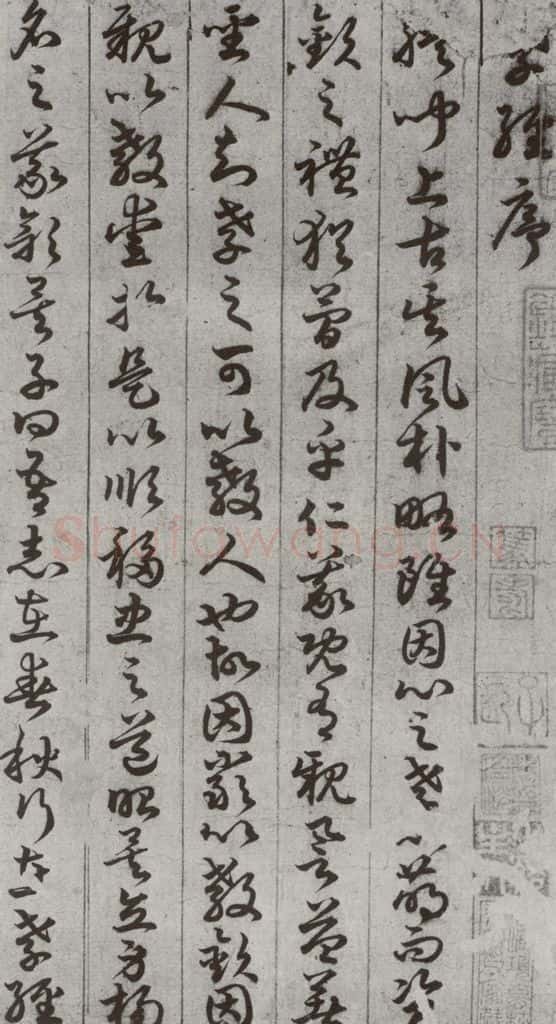 孝經序
朕聞上古其風朴略雖因心之孝以萌而資
敬之禮猶簡及乎仁義既有親譽益著
聖人知孝之可以教人也故因嚴以教敬因
親以教愛於是以順移忠之道昭矣立身揚
名之義彰矣子曰吾志在春秋行在孝經
Shufawang.CN